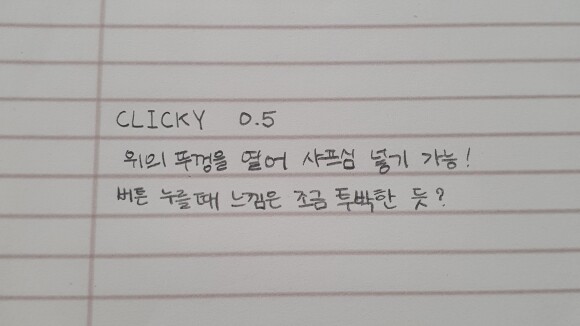 CLICKY 0.5
위의 뚜껑을 열어 샤프심 넣기 가능!
버튼 누를때 느낌은 조금 투박한 듯?